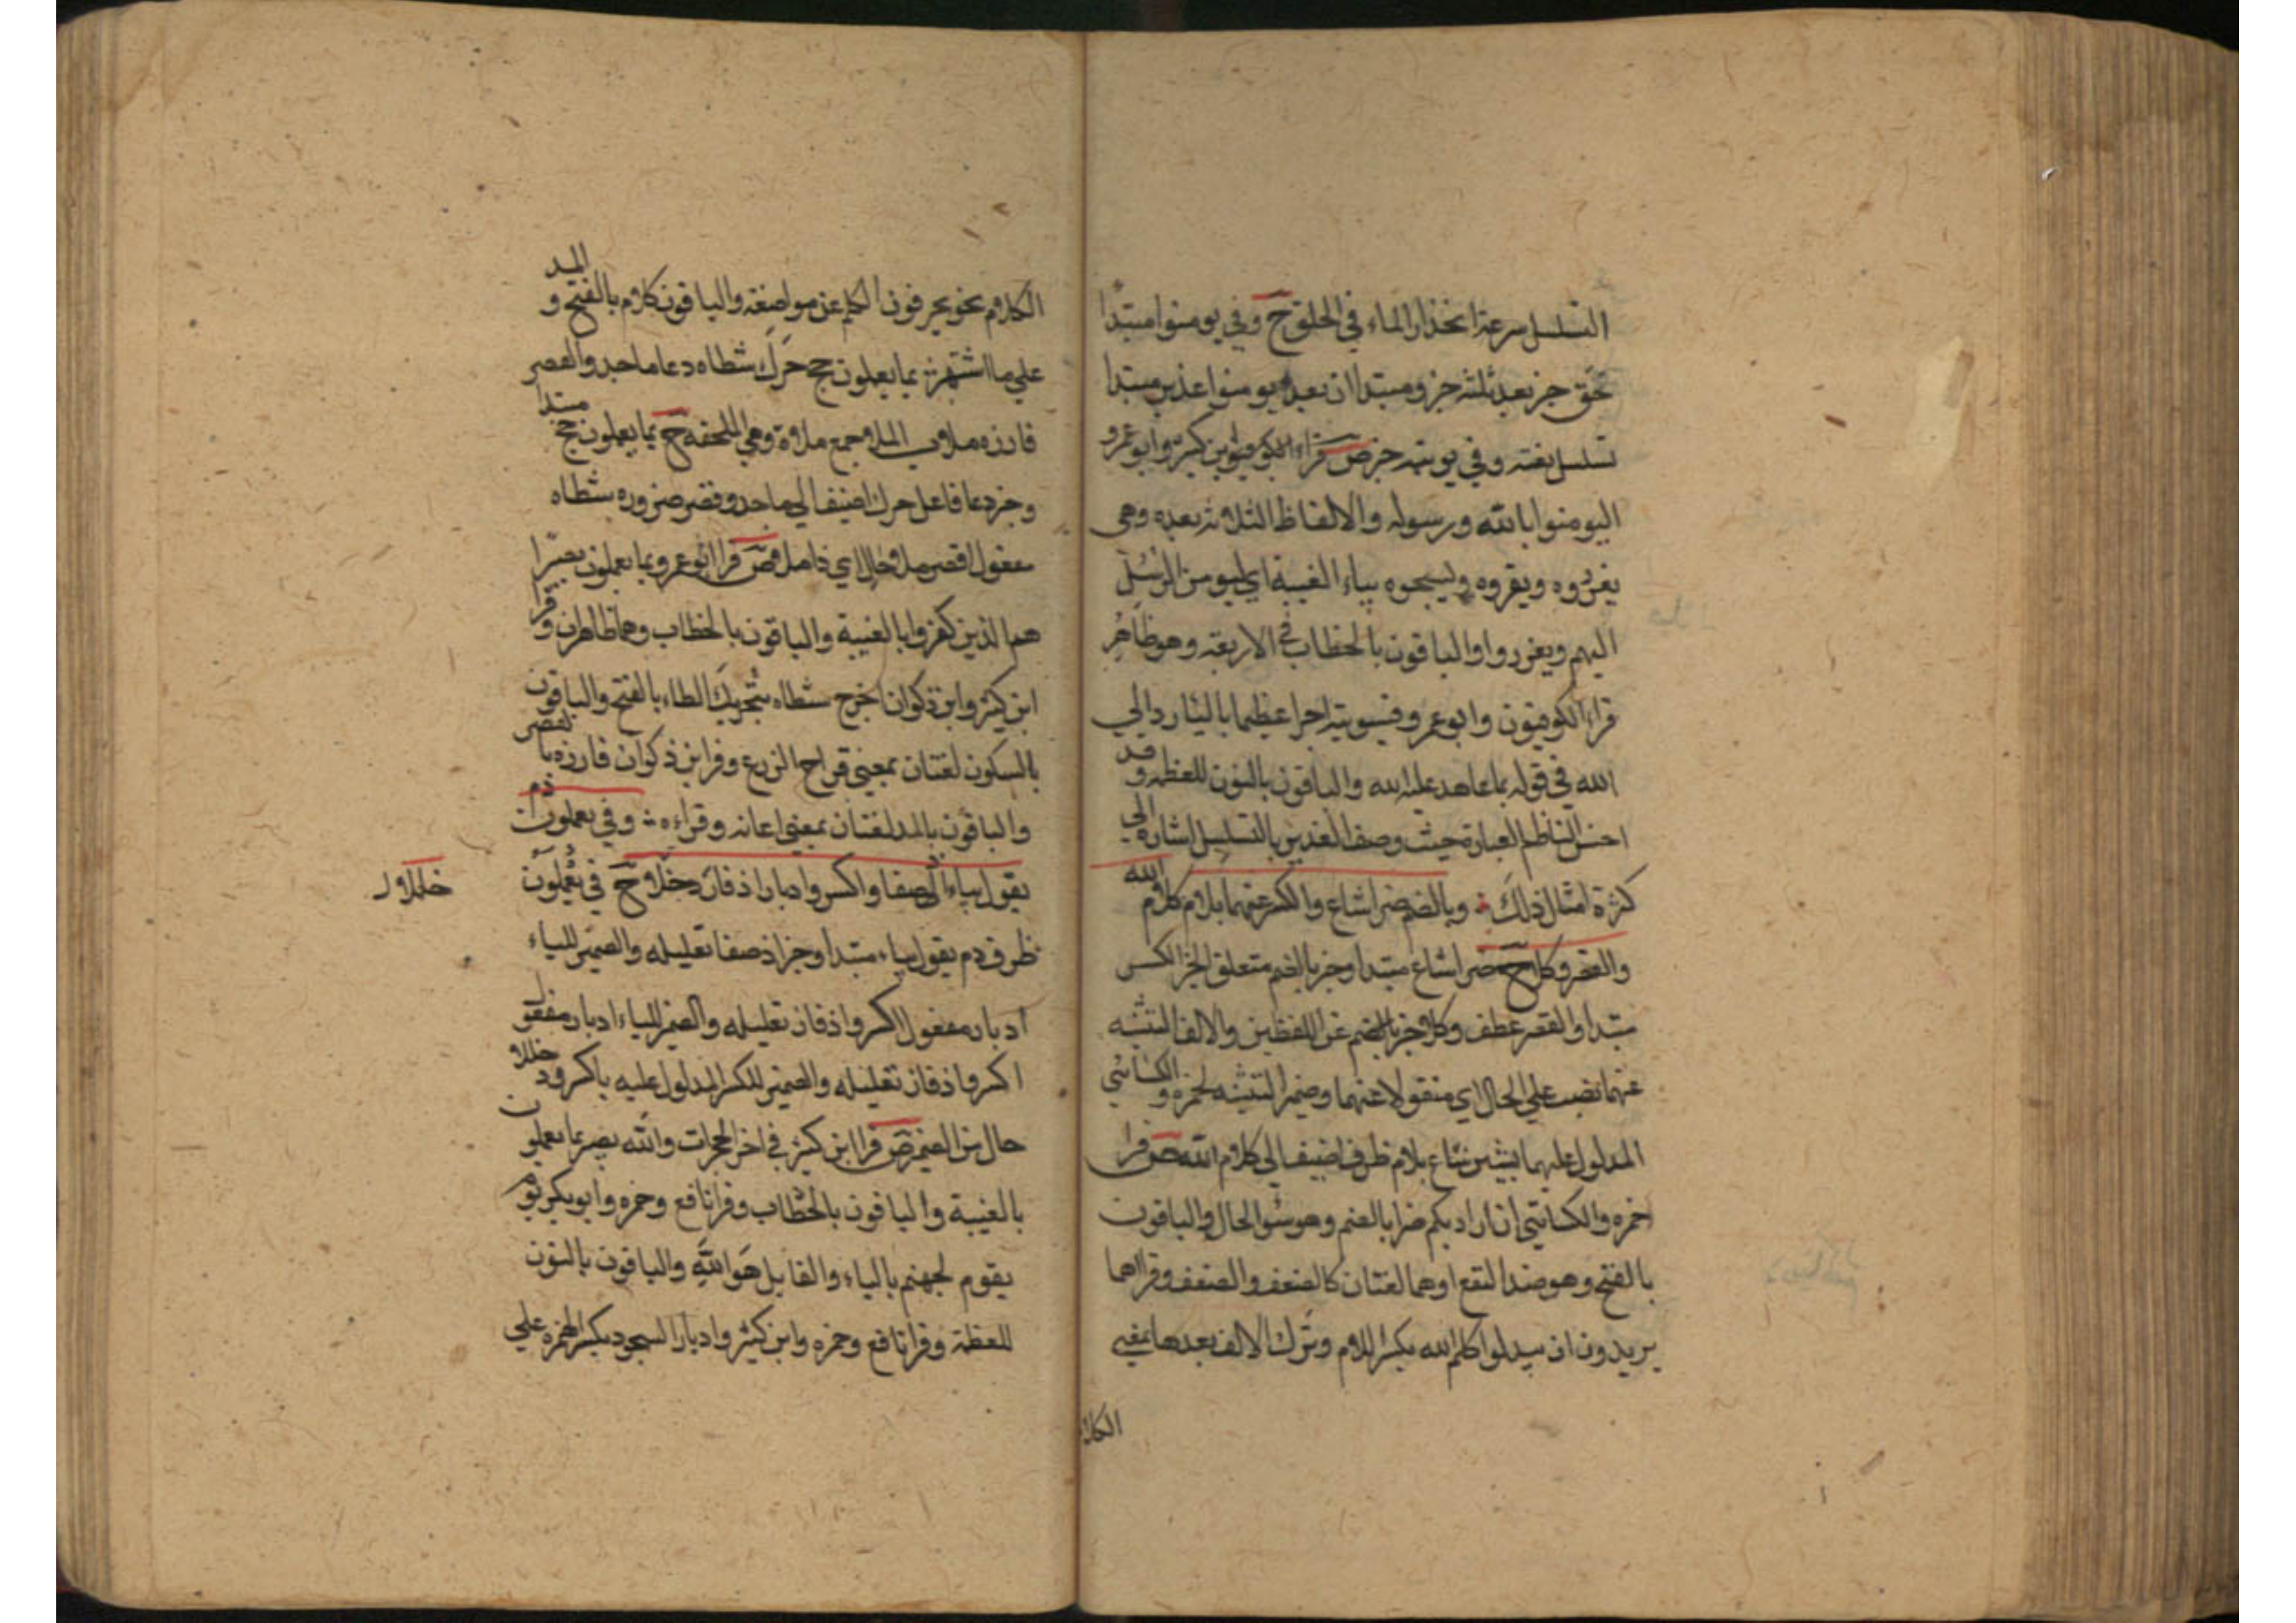 التسلسل سرعة انحذار الماء في الحلق ح وفي يومنوا مبتدا
حق خبر بعد ثلثه خبر ومبتدا ان بعد يومنوا غدير مبتدا
تسلسل نعته وفي يوتيه خبر ص قراء الكوفيون وابن كثير وابو عمرو
اليومنوا بالله ورسوله والالفاظ الثلاثه بعده وهى
يعزروه ويقروه ويسبحوه بياء الغيبة اي ليومن الرسل
اليهم ويعزروا والباقون بالخطاب في الاربعة وهو ظاهر
قراء الكوفيون وابو عمرو فسيوتيه اجرا عظيما بالياء ردا الي
الله في قوله بما عاهد عليه الله والباقون بالنون للعظمه وقد
احسن الناظم العبارة حيث وصف الغدير بالتسلسل اشارة الي
كثرة امثال ذلك وبالضم ضرا شاع والكسر عنهما بلام كلام الله
والقصر وكلا ح ضرا شاع مبتدا وخبر بالضم متعلق الخبر الكسر
مبتدا والقصر عطف وكلا خبر بالضم عن اللفظين والالف للتثنيه
عنهما نصب علي الحال اي منقولا عنهما وضمير التثنيه لحمزه والكسائي
المدلول عليهما بشين شاع بلام ظرف اضيف الي كلام الله ص قرا
حمزه والكسائي ان اراد بكم ضرا بالضم وهو سوا الحال والباقون
بالفتح وهو ضد النفع او هما لغتان كالضعف والضعف وقراهما
يريدون ان يبدلوا كلم الله بكسر اللام وترك الالف بعدها بمعني
الكلا
الكلام نحو يحرفون الكلم عن مواضعه والباقون كلام بالفتح والمد
علي ما اشتهر بما يعملون حج حرك شطاه دعا ماجد والقصر
فازره ملا ب الملا جمع ملاة وهي الملحفه ح بما يعملون حج مبتدا
وخبر دعا فاعل حرك اضيف الي ماجد وقصر ضروره شطاه
مفعول اقصر ملا حال اي ذا ملا ص قرا ابو عمرو بما يعملون بصيرا
هم الذين كفروا بالغيبة والباقون بالخطاب وهما ظاهران وقرا
ابن كثير وابن ذكوان اخرج شطاه بتحريك الطاء بالفتح والباقون
بالسكون لغتان بمعني فراح الزرع وقرا ابن ذكوان فازره بالقصر
والباقون بالمد لغتان بمعني اعانه وقراءه وفي يعملون دم
يقول بياء اذ صفا واكسروا ادبار اذ فاز دخللا ح في يعملون
خللاو
ظرف دم يقول بياء مبتدا وخبر اذ صفا تعليله والضمير للياء
ادبار مفعول اكسروا اذ فاز تعليله والضمير للياء ادبار مفعول
اكسروا اذ فاز تعليله والضمير للكسر المدلول عليه باكسروا دخللا
حال من الضمير ص قرا ابن كثير في اخر الحجرات والله بصير بما يعملون
بالغيبة والباقون بالخطاب وقرا نافع وحمزه وابو بكر يوم
يقوم لجهنم بالياء والقايل هو الله والباقون بالنون
للعظمة وقرا نافع وحمزه وابن كثير وادبار السجود بكسر الهمزه علي